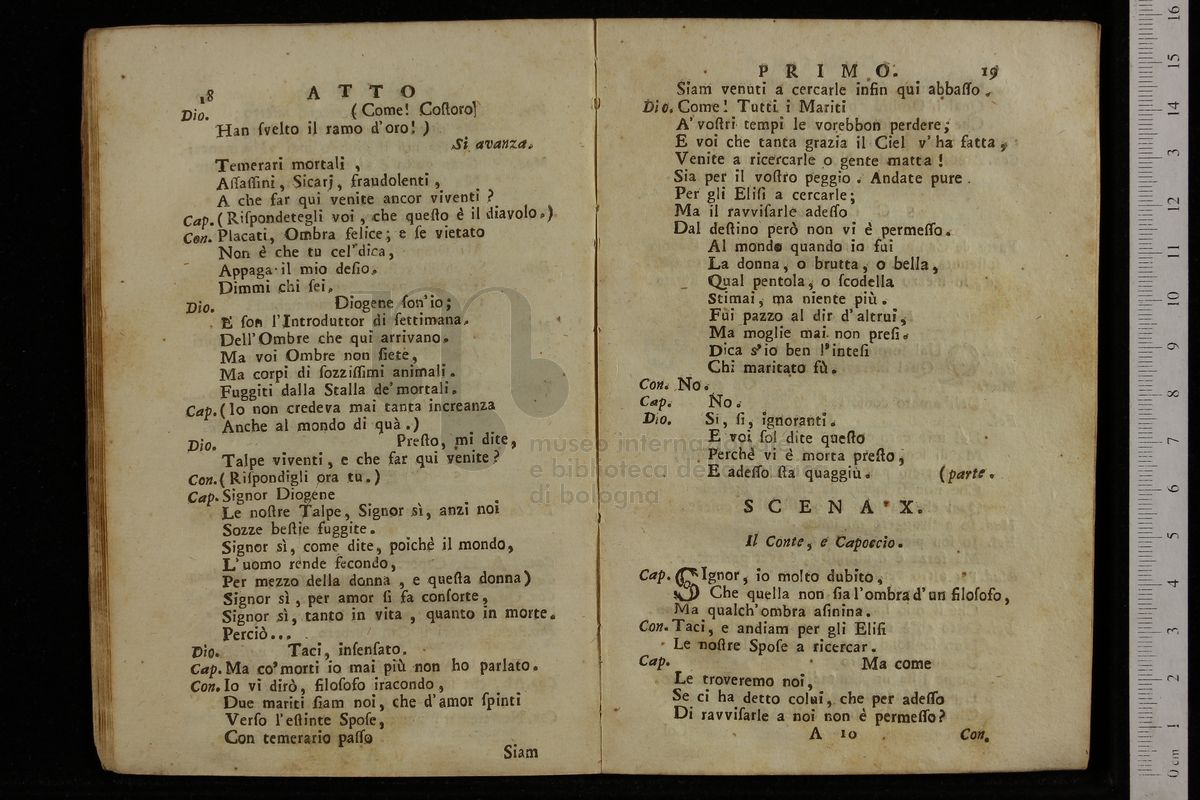 18 ATTO
Dio. (Come! Coſtoro]
Han ſvelto il ramo d'oro! )
Si avanza.
Temerari mortali ,
Aſſaſſini, Sicarj, fraudolenti ,
A che far qui venite ancor viventi ?
Cap. (Riſpondetegli voi , che queſto è il diavolo.)
Con. Placati, Ombra felice; e ſe vietato
Non è che tu cel dica,
Appaga il mio deſio.
Dimmi chi ſei.
Dio. Diogene ſon'io;
E ſon l'Introduttor di ſettimana.
Dell'Ombre che qui arrivano.
Ma voi Ombre non ſiete,
Ma corpi di ſozziſſimi animali.
Fuggiti dalla Stalla de'mortali.
Cap. (Io non credeva mai tanta increanza
Anche al mondo di quà.)
Dio. Preſto, mi dite,
Talpe viventi, e che far qui venite?
Con. (Riſpondigli ora tu.)
Cap. Signor Diogene
Le noſtre Talpe, Signor sì, anzi noi
Sozze beſtie fuggite.
Signor sì, come dite, poichè il mondo,
L'uomo rende fecondo,
Per mezzo della donna , e queſta donna)
Signor sì , per amor ſi fa conſorte,
Signor sì, tanto in vita , quanto in morte.
Perciò...
Dio. Taci, inſenſato.
Cap. Ma co'morti io mai più non ho parlato.
Con. Io vi dirò, filoſofo iracondo,
Due mariti ſiam noi, che d'amor ſpinti
Verſo l'eſtinte Spoſe,
Con temerario paſſo
Siam
PRIMO. 19
Siam venuti a cercarle infin qui abbaſſo.
Dio. Come! Tutti i Mariti
A' voſtri tempi le vorebbon perdere;
E voi che tanta grazia il Ciel v'ha fatta,
Venite a ricercarle o gente matta !
Sia per il voſtro peggio. Andate pure.
Per gli Eliſi a cercarle;
Ma il ravviſarle adeſſo
Dal deſtino però non vi è permeſſo.
Al mondo quando io fui
La donna, o brutta, o bella,
Qual pentola, o ſcodella
Stimai, ma niente più.
Fui pazzo al dir d'altrui,
Ma moglie mai non preſi.
Dica s'io ben l'inteſi
Chi maritato fù.
Con. No.
Cap. No.
Dio. Si, ſi, ignoranti.
E voi ſol dite queſto
Perchè vi è morta preſto,
E adeſſo ſta quaggiù. (parte.
SCENA X.
Il Conte, e Capoccio.
Cap. SIgnor, io molto dubito,
Che quella non ſia l'ombra d'un filoſofo,
Ma qualch'ombra aſinina.
Con. Taci, e andiam per gli Eliſi
Le noſtre Spoſe a ricercar.
Cap. Ma come
Le troveremo noi,
Se ci ha detto colui, che per adeſſo
Di ravviſarle a noi non è permeſſo?
A 10 Con.
museo internazionale
e biblioteca de
di bologna
0 cm 1 2 3 4 5 6 7 8 9 10 11 12 13 14 15 16